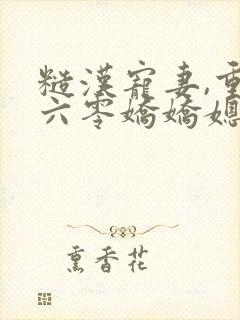 糙漢寵妻,重
六零嬌嬌媳
熏香花